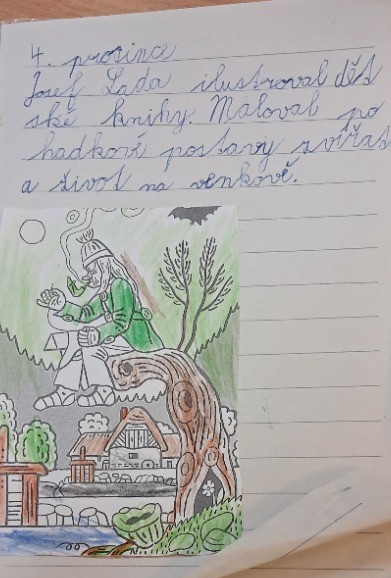 4. prosince
Josef Lada ilustroval dět
ské knihy. Maloval po
hadkové postavy zvířat
a život na venkově.